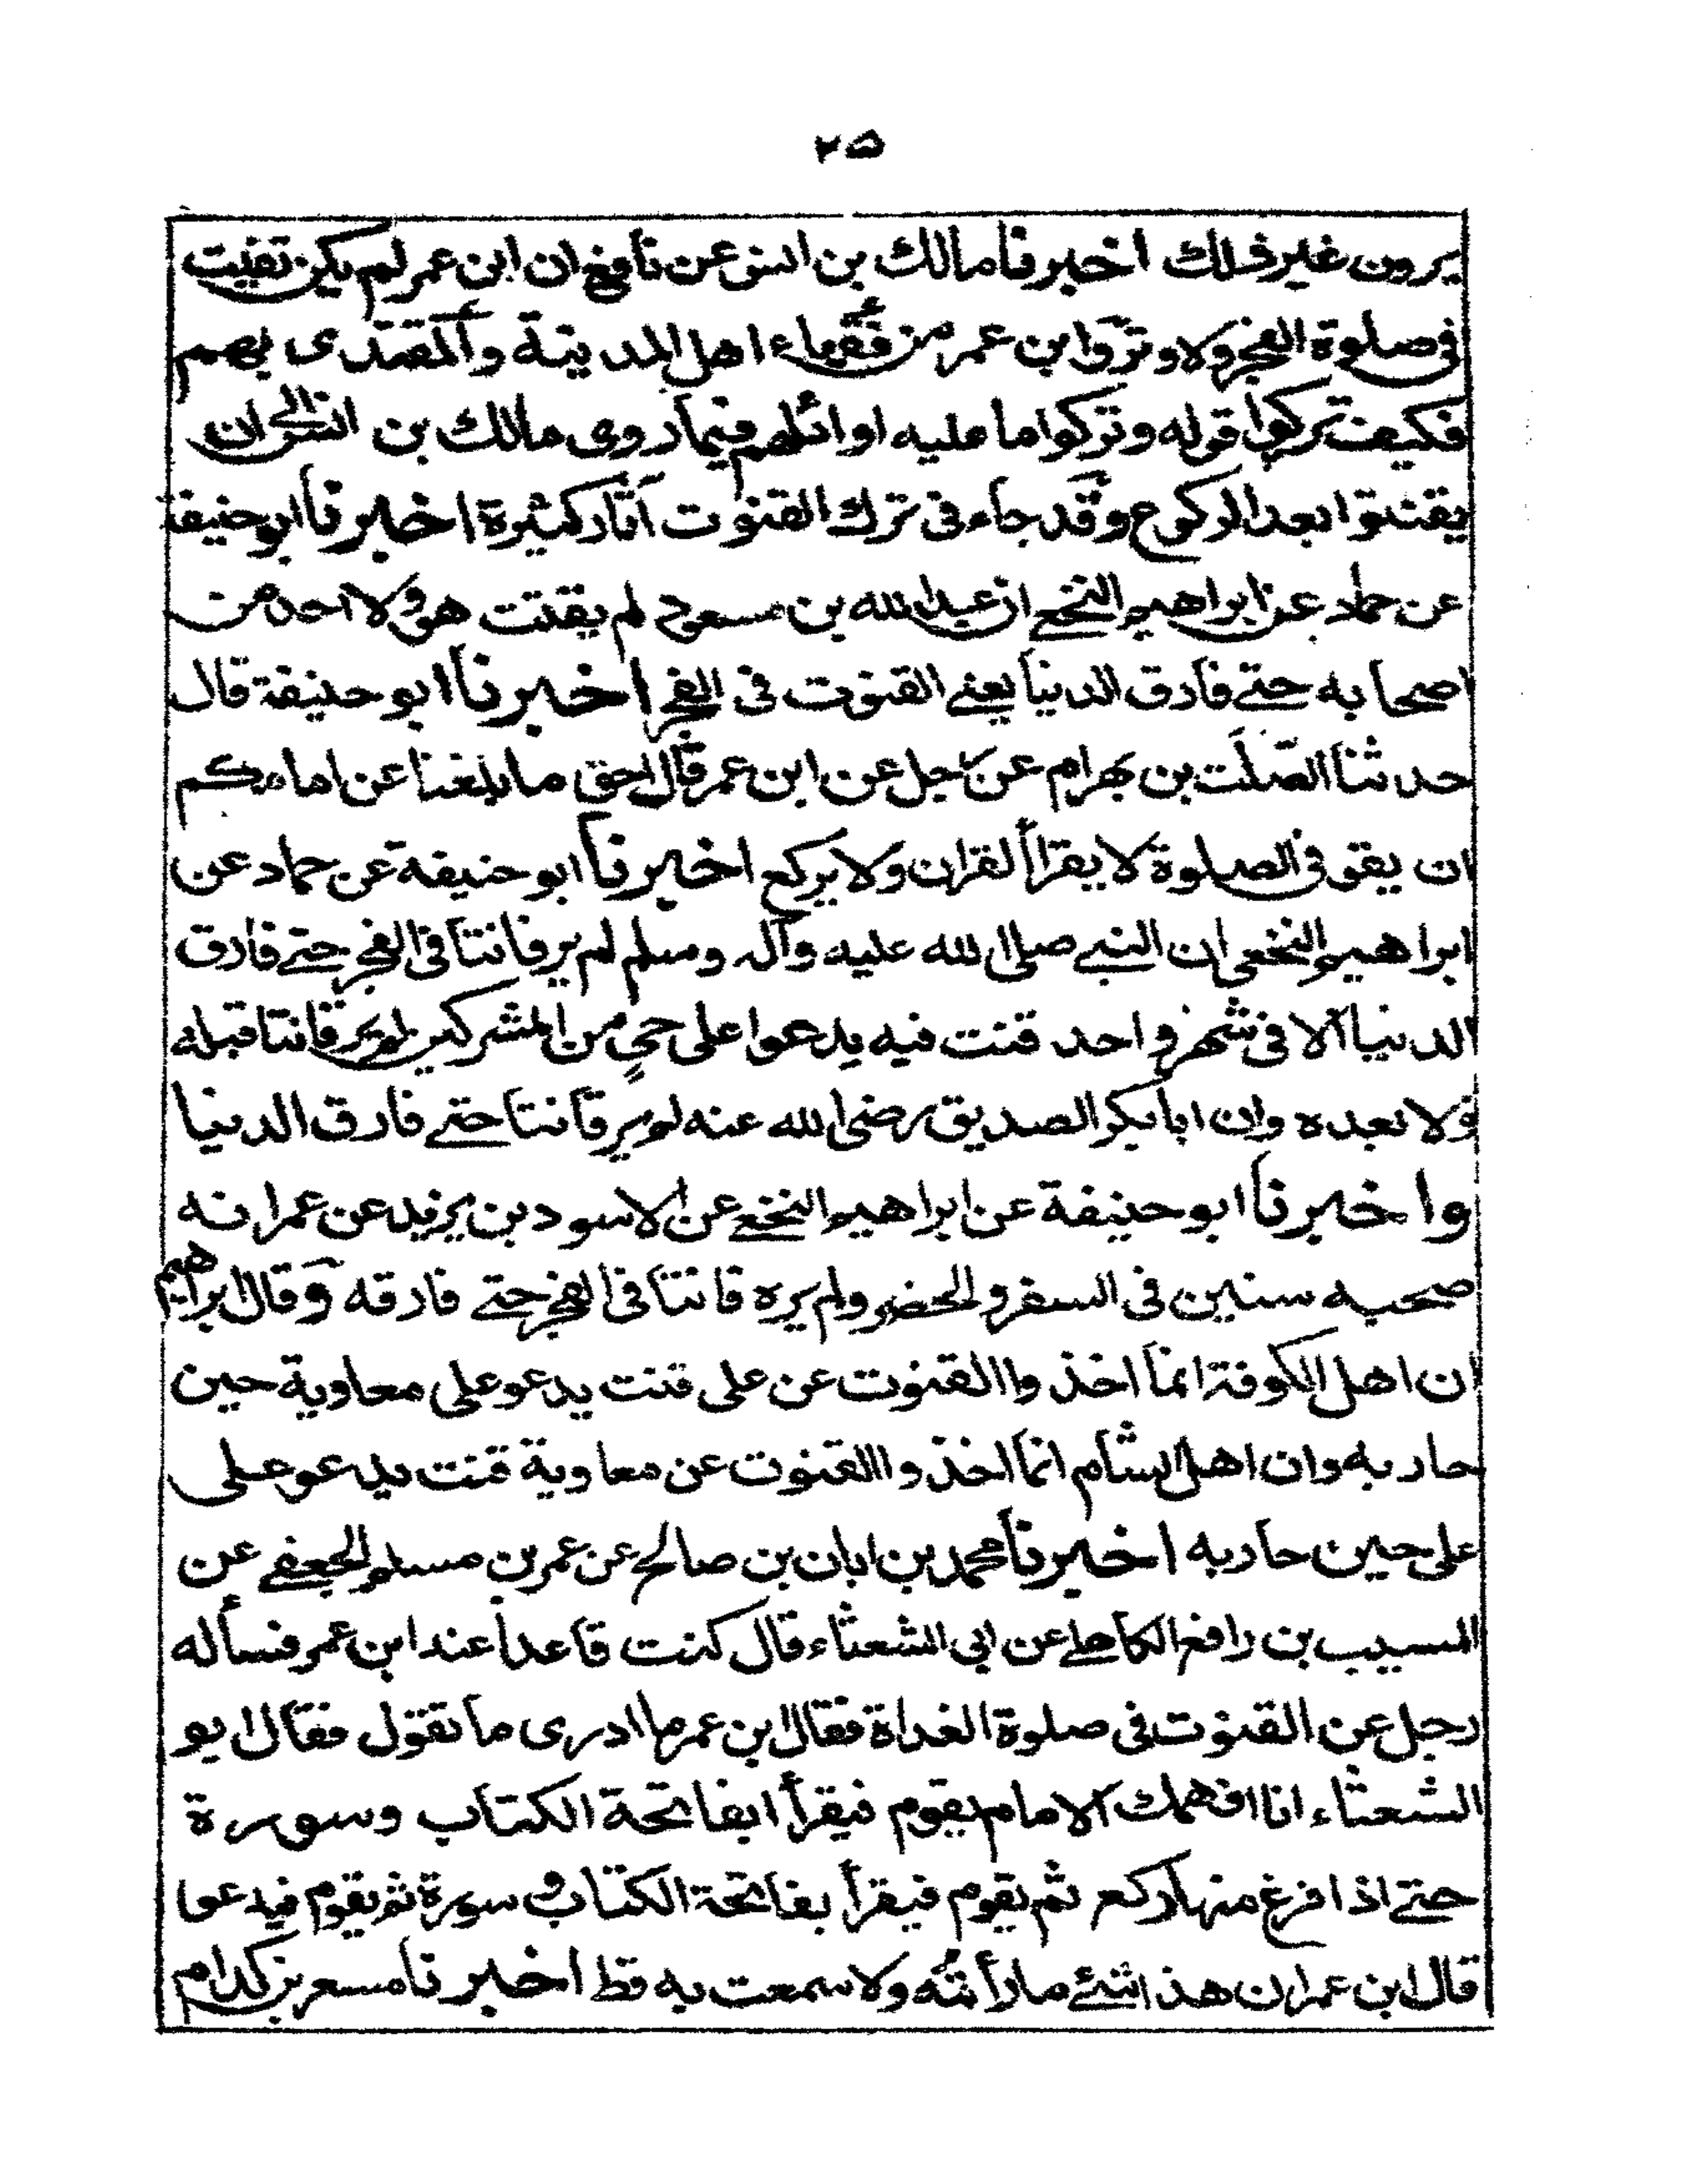 ٢٥
يرون غير ذلك اخبرنا مالك بن انس عن نافع ان ابن عمر لم يكن يقنت
فى صلوة الفجر ولا وتر وابن عمر من فقهاء اهل المدينة والمقتدى بهم
فكيف تركوا قوله وتركوا ما عليه اوائلهم فيما روى مالك بن انس ان
يقنتوا بعد الركوع وقد جاء فى ترك القنوت آثار كثيرة اخبرنا ابو حنيفة
عن حماد عن ابراهيم النخعي ان عبدالله بن مسعود لم يقنت هو ولا احد من
اصحابه حتى فارق الدنيا يعنى القنوت فى الفجر اخبرنا ابو حنيفة قال
حدثنا الصّلت بن بهرام عن رجل عن ابن عمر قال احق ما بلغنا عن امامكم
ان يقوم فى الصلوة لا يقرأ القران ولا يركع اخبرنا ابو حنيفة عن حماد عن
ابراهيم النخعى ان النبي صلى الله عليه وآله وسلم لم ير قانتا فى الفجر حتى فارق
الدنيا الا فى شهر واحد قنت فيه يدعوا على حيٍ من المشركين لم ير قانتا قبله
ولا بعده وان ابا بكر الصديق رضى الله عنه لم ير قانتا حتى فارق الدنيا
واخبرنا ابو حنيفة عن ابراهيم النخعي عن الاسود بن يزيد عن عمر انه
صحبه سنين فى السفر والحضر ولم يره قانتا فى الفجر حتى فارقه وقال ابراهيم
ان اهل الكوفة انما اخذوا القنوت عن على قنت يدعو على معاوية حين
حاربه وان اهل الشام انما اخذوا القنوت عن معاوية قنت يدعو على
على حين حاربه اخبرنا محمد بن ابان بن صالح عن عمر بن مسلم الجعفي عن
المسيب بن رافع الكاهلي عن ابي الشعثاء قال كنت قاعدا عند ابن عمر فسأله
رجل عن القنوت فى صلوة الغداة فقال ابن عمر ما ادرى ما تقول فقال ابو
الشعثاء انا افهمك الامام يقوم فيقرأ ابفاتحة الكتاب وسورة
حتى اذا فرغ منها ركع ثم يقوم فيقرأ بفاتحة الكتاب وسورة ثم يقوم فيدعوا
قال ابن عمر ان هذا شئ ما رأيته ولا سمعت به قط اخبرنا مسعر بن كدام